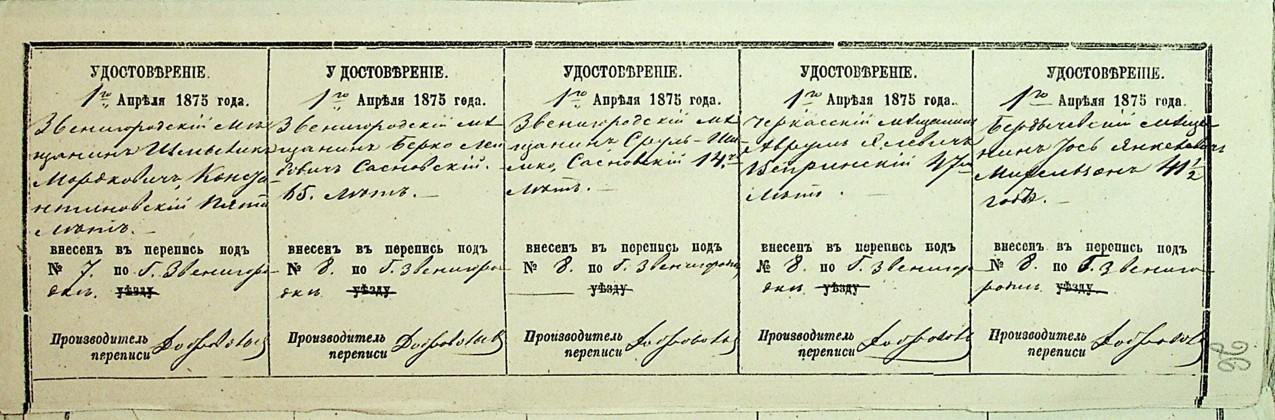 УДОСТОВѢРЕНІЕ.
1го Апрѣля 1875 года.
Звенигородскій мѣ-
щанинъ Шмель
Мордковичъ, Конста
нтиновскій пяти
лѣтъ. —
внесенъ въ перепись подъ
№ 7. по г. Звенигоро-
дкѣ. уѣзду
Производитель
переписи
УДОСТОВѢРЕНІЕ.
1го Апрѣля 1875 года.
Звенигородскій мѣ
щанинъ Берко Лей
бовичъ Сасновскій.
65. лѣтъ. —
внесенъ въ перепись подъ
№ 8. по г. Звенигоро-
дкѣ уѣзду
Производитель
переписи
УДОСТОВѢРЕНІЕ.
1го Апрѣля 1875 года.
Звенигородскій мѣ
щанинъ Сруль-Ши
мко, Сасновскій 14.
лѣтъ. —
внесенъ въ перепись подъ
№ 8. по г. Звенигородкѣ
уѣзду
Производитель
переписи
УДОСТОВѢРЕНІЕ.
1го Апрѣля 1875 года.
Черкасскій мѣщанинъ
Аврумъ
Вепринскій 47
лѣтъ
внесенъ въ перепись подъ
№ 8. по г. Звенигор
дкѣ уѣзду
Производитель
переписи
УДОСТОВѢРЕНІЕ.
1го Апрѣля 1875 года.
Бердичевскій мѣща
нинъ Іось Янкелевичъ
41½
годъ.
внесенъ въ перепись подъ
№ 8. по г. Звениго
родкѣ уѣзду
Производитель
переписи